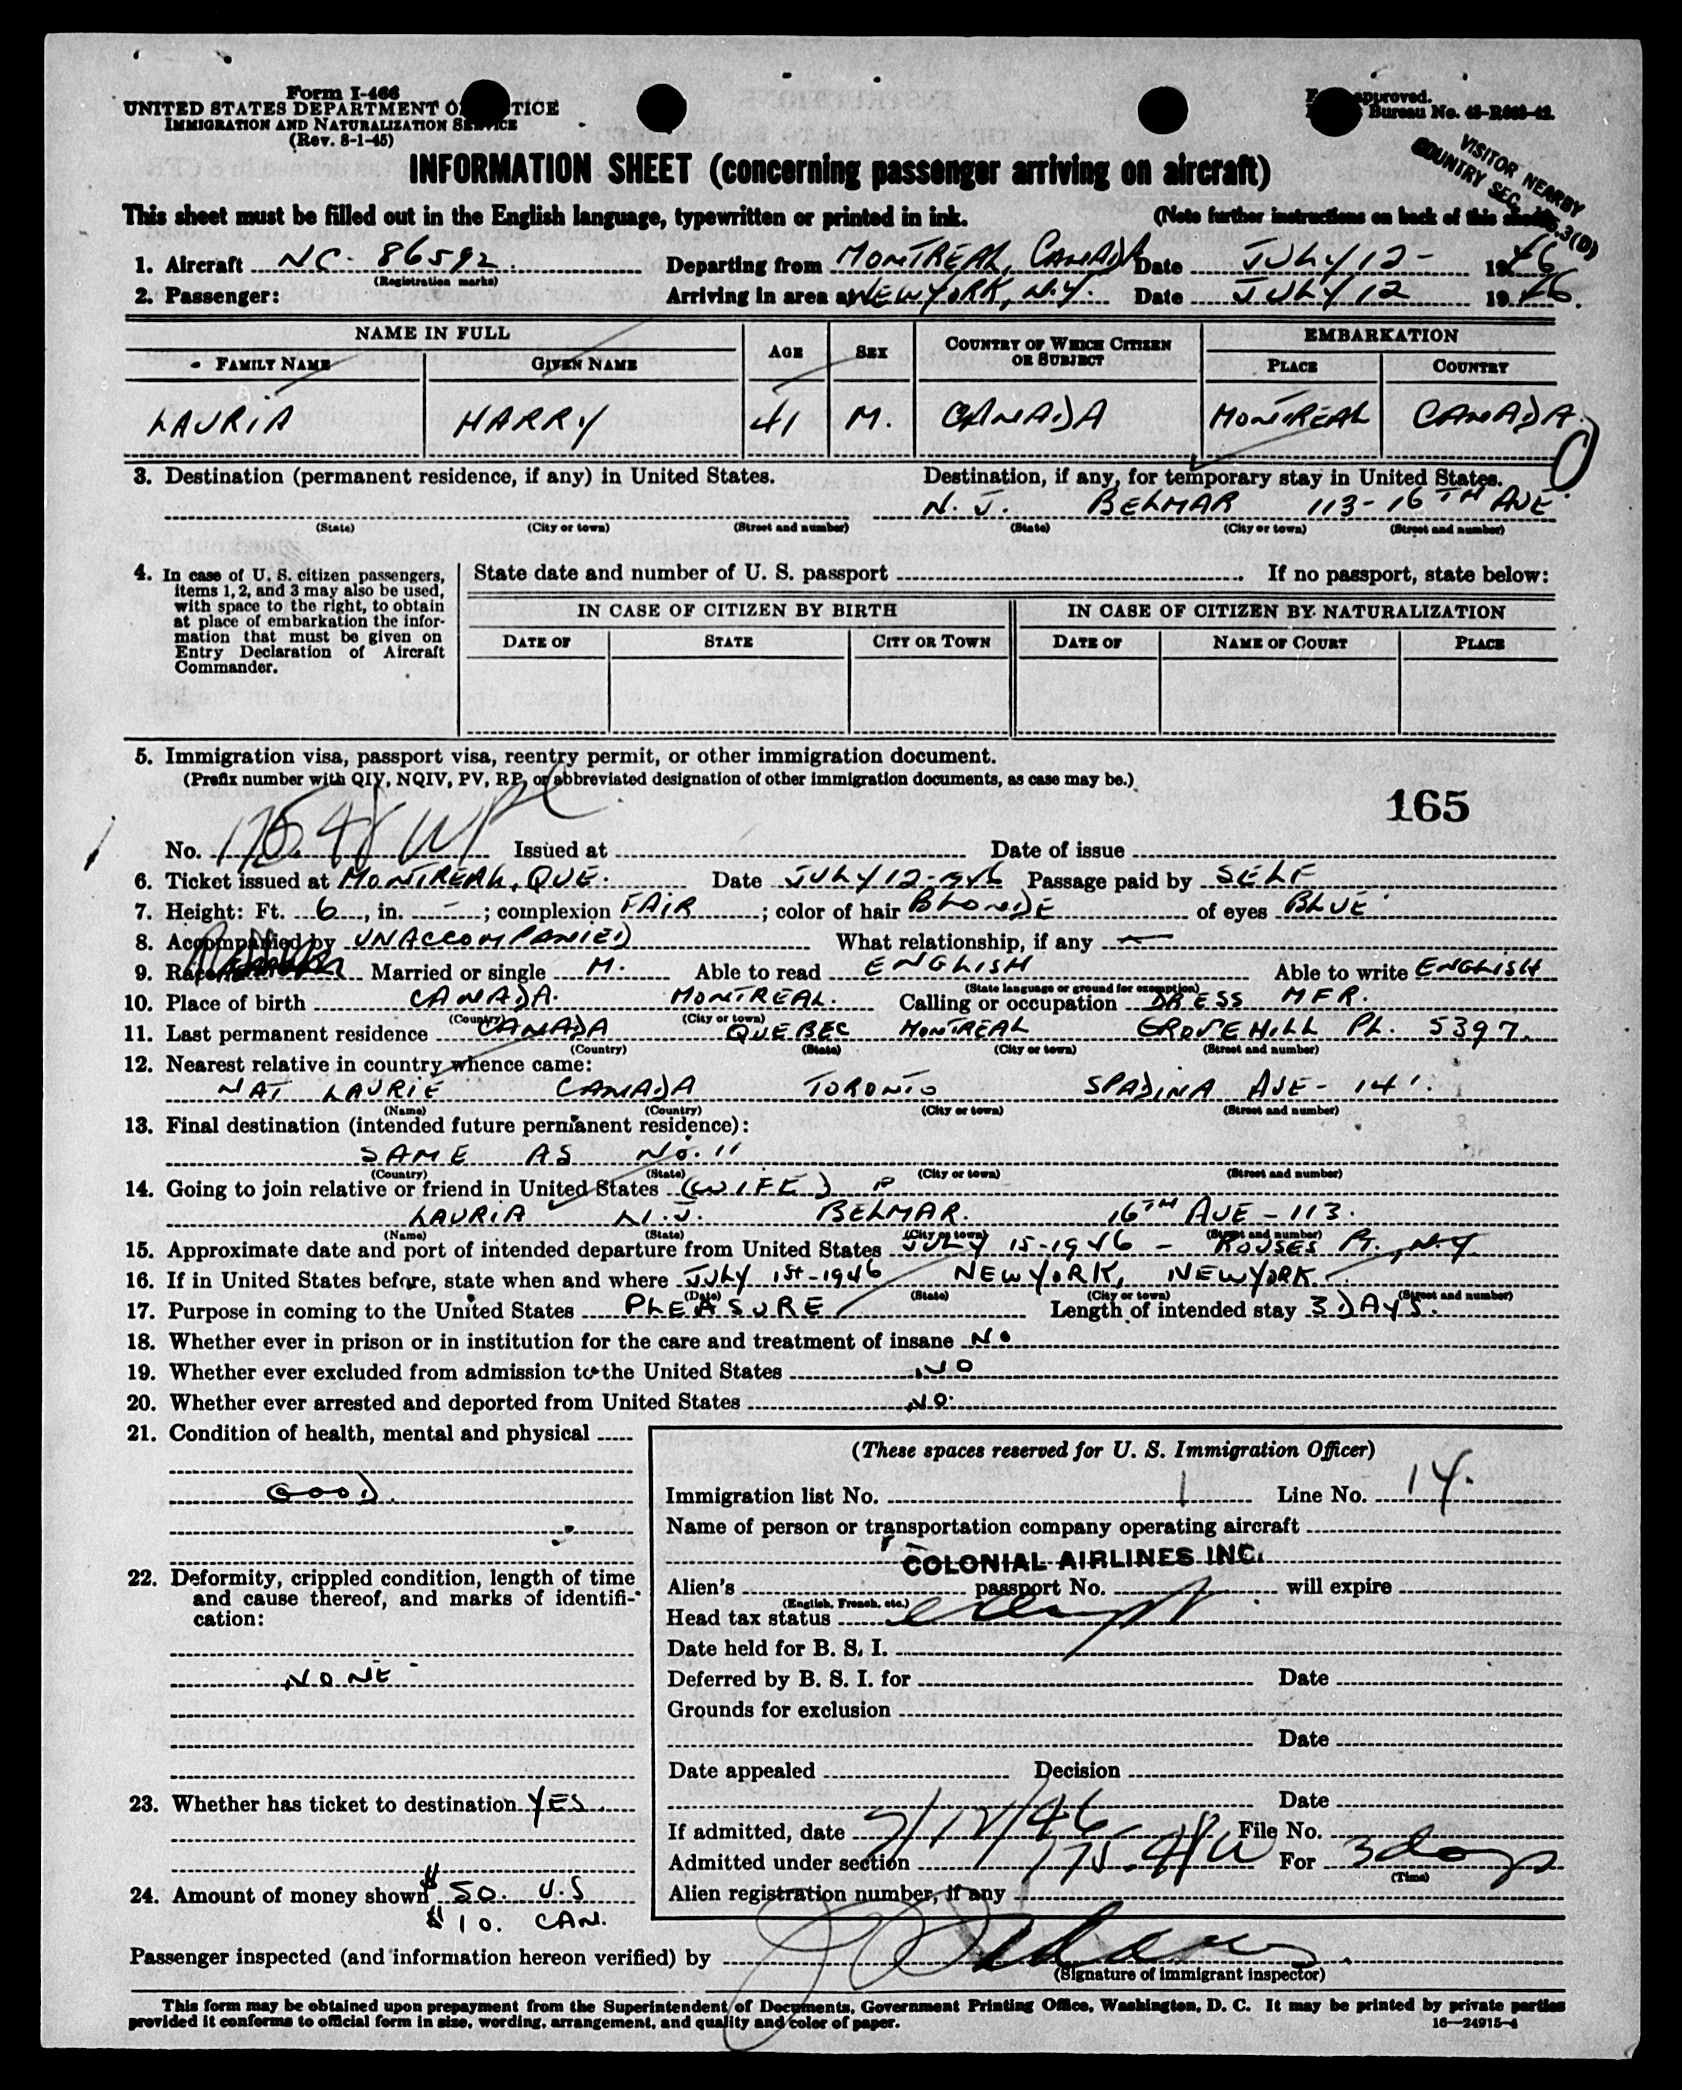 Form I-466
UNITED STATES DEPARTMENT OF JUSTICE
IMMIGRATION AND NATURALIZATION SERVICE
(Rev. 8-1-45)
approved.
Bureau No. 43-R083-42.
VISITOR NEARBY
COUNTRY SEC. 3(D)
INFORMATION SHEET (concerning passenger arriving on aircraft)
This sheet must be filled out in the English language, typewritten or printed in ink. (Note further instructions on back of this sheet)
1. Aircraft NC. 86592 Departing from MONTREAL, CANADA Date JULY 12- 1946
(Registration marks)
2. Passenger: Arriving in area at NEW YORK, N.Y. Date JULY 12 1946.
NAME IN FULL AGE SEX COUNTRY OF WHICH CITIZEN OR SUBJECT EMBARKATION
FAMILY NAME GIVEN NAME PLACE COUNTRY
LAURIA HARRY 41 M. CANADA MONTREAL CANADA.
3. Destination (permanent residence, if any) in United States. Destination, if any, for temporary stay in United States.
N. J. BELMAR 113-16TH AVE
(State) (City or town) (Street and number) (State) (City or town) (Street and number)
4. In case of U. S. citizen passengers, items 1, 2, and 3 may also be used, with space to the right, to obtain at place of embarkation the information that must be given on Entry Declaration of Aircraft Commander.
State date and number of U. S. passport . If no passport, state below:
IN CASE OF CITIZEN BY BIRTH IN CASE OF CITIZEN BY NATURALIZATION
DATE OF STATE CITY OR TOWN DATE OF NAME OF COURT PLACE
5. Immigration visa, passport visa, reentry permit, or other immigration document.
(Prefix number with QIV, NQIV, PV, RP, or abbreviated designation of other immigration documents, as case may be.)
165
No. 175.48 Issued at Date of issue
6. Ticket issued at MONTREAL, QUE. Date JULY 12-1946 Passage paid by SELF
7. Height: Ft. 6, in. -; complexion FAIR; color of hair BLONDE of eyes BLUE
8. Accompanied by UNACCOMPANIED What relationship, if any —
9. Race Married or single M. Able to read ENGLISH Able to write ENGLISH
(State language or ground for exemption)
10. Place of birth CANADA. MONTREAL. Calling or occupation DRESS MFR.
(Country) (City or town)
11. Last permanent residence CANADA QUEBEC MONTREAL GROVEHILL PL. 5397.
(Country) (State) (City or town) (Street and number)
12. Nearest relative in country whence came:
NAT LAURIE CANADA TORONTO SPADINA AVE- 141.
(Name) (Country) (City or town) (Street and number)
13. Final destination (intended future permanent residence):
SAME AS No. 11
(Country) (State) (City or town) (Street and number)
14. Going to join relative or friend in United States (WIFE)
LAURIA N.J. BELMAR. 16TH AVE-113.
(Name) (State) (City or town) (Street and number)
15. Approximate date and port of intended departure from United States JULY 15-1946 - ROUSES PT., N.Y.
16. If in United States before, state when and where JULY 1st-1946 NEW YORK, NEW YORK
(Date) (State) (City or town) (Street and number)
17. Purpose in coming to the United States PLEASURE Length of intended stay 3 DAYS.
18. Whether ever in prison or in institution for the care and treatment of insane NO
19. Whether ever excluded from admission to the United States NO
20. Whether ever arrested and deported from United States NO.
21. Condition of health, mental and physical
GOOD.
22. Deformity, crippled condition, length of time and cause thereof, and marks of identification:
NONE
23. Whether has ticket to destination YES
24. Amount of money shown $50. U.S
$10. CAN.
(These spaces reserved for U. S. Immigration Officer)
Immigration list No. 1 Line No. 14.
Name of person or transportation company operating aircraft
COLONIAL AIRLINES INC.
Alien's passport No. will expire
(English, French, etc.)
Head tax status exempt
Date held for B. S. I.
Deferred by B. S. I. for Date
Grounds for exclusion
Date
Date appealed Decision
Date
If admitted, date 7/12/46 File No.
Admitted under section 175.48 For 3 days
(Time)
Alien registration number, if any
Passenger inspected (and information hereon verified) by
(Signature of immigrant inspector)
This form may be obtained upon prepayment from the Superintendent of Documents, Government Printing Office, Washington, D. C. It may be printed by private parties
provided it conforms to official form in size, wording, arrangement, and quality and color of paper. 16—24915-4